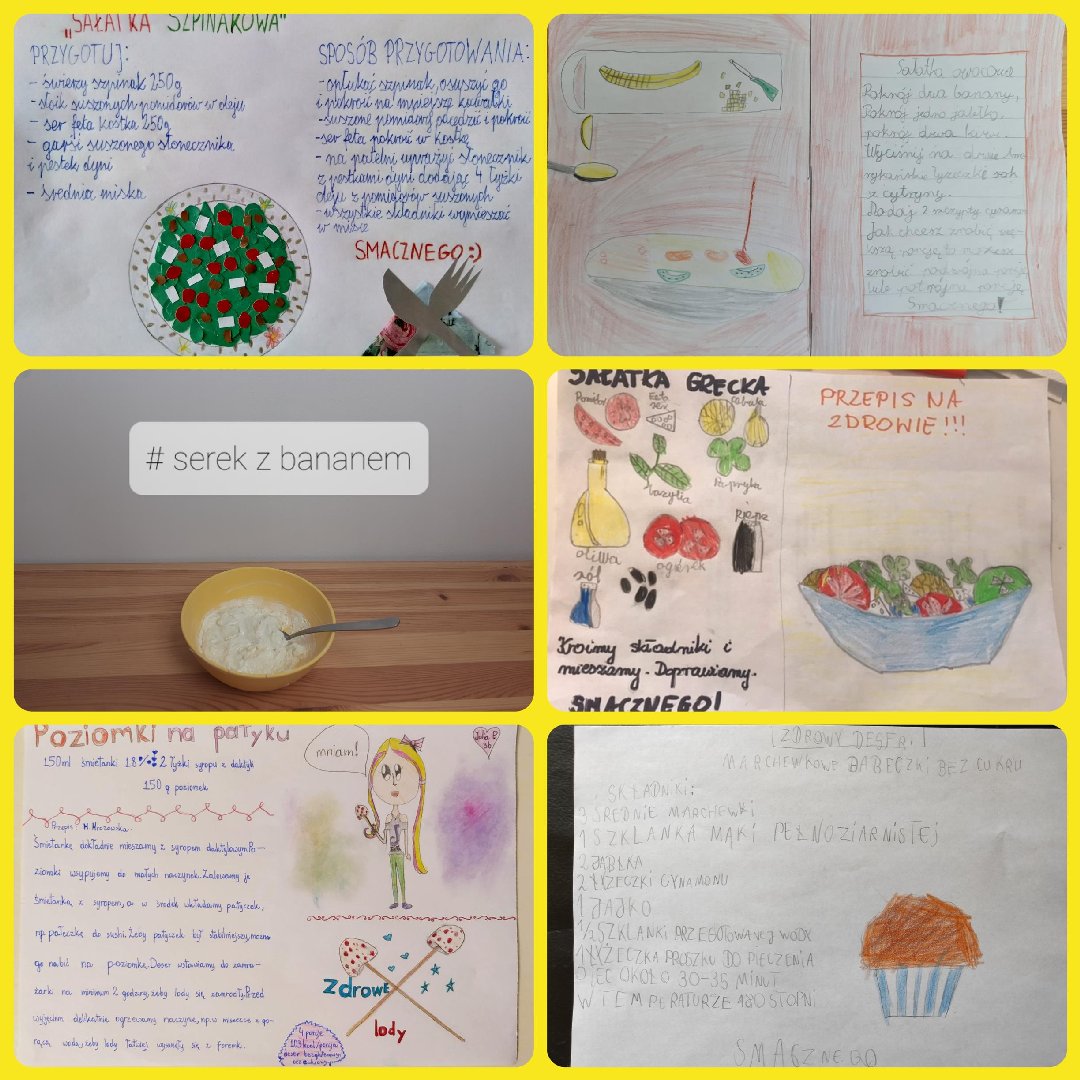 „SAŁATKA SZPINAKOWA"
PRZYGOTUJ:
- świeży szpinak 250g
- słoik suszonych pomidorów w oleju
- ser feta kostka 250g
- garść suszonego słonecznika
i pestek dyni
- średnia miska
SPOSÓB PRZYGOTOWANIA:
- opłukać szpinak, osuszyć go
i pokroić na mniejsze kawałki
- suszone pomidory odcedzić i pokroić
- ser feta pokroić w kostkę
- na patelni uprażyć słonecznik
z pestkami dyni dodając 4 łyżki
oleju z pomidorów suszonych
- wszystkie składniki wymieszać
w misie
SMACZNEGO :)
Sałatka owocowa
Pokrój dwa banany,
Pokrój jedno jabłko,
pokrój dwa kiwi.
Wyciśnij na drwie
łyżeczki sok
z cytryny.
Dodaj 2 szczypty cynamonu
Jak chcesz zrobić wię-
kszą porcję to możesz
zrobić podwójną porcję
lub potrójną porcję
Smacznego!
# serek z bananem
SAŁATKA GRECKA
Pomidor
Feta
ser
Cebula
bazylia
Papryka
oliwa
ogórek
pieprz
sól
Kroimy składniki i
mieszamy. Doprawiamy.
SMACZNEGO!
PRZEPIS NA
ZDROWIE!!!
Poziomki na patyku
150ml śmietanki 18% 2 łyżki syropu z daktyli
150 g poziomek
Przepis: M. Mrozowska.
Śmietankę dokładnie mieszamy z syropem daktylowym. Po-
ziomki wsypujemy do małych naczynek. Zalewamy je
śmietanką z syropem, a w środek wkładamy patyczek,
np. pałeczkę do sushi. Żeby patyczek był stabilniejszy, można
go nabić na poziomkę. Deser wstawiamy do zamra-
żark na minimum 2 godziny, żeby lody się zamroziły. Przed
wyjęciem delikatnie ogrzewamy naczynie, np. w miseczce z go-
rącą wodą, żeby lody łatwiej wysunęły się z foremki.
mniam!
Julia B.
3b
Zdrowe
lody
4 porcje
103 kcal/porcja
deser bezglutenowy
ZDROWY DESER!
MARCHEWKOWE BABECZKI BEZ CUKRU
SKŁADNIKI:
ŚREDNIE MARCHEWKI
1 SZKLANKA MĄKI PEŁNOZIARNISTEJ
2 JABŁKA
2 ŁYŻECZKI CYNAMONU
1 JAJKO
1/2 SZKLANKI PRZEGOTOWANEJ WODY
1 ŁYŻECZKA PROSZKU DO PIECZENIA
PIEC OKOŁO 30-35 MINUT
W TEMPERATURZE 180 STOPNI
SMACZNEGO